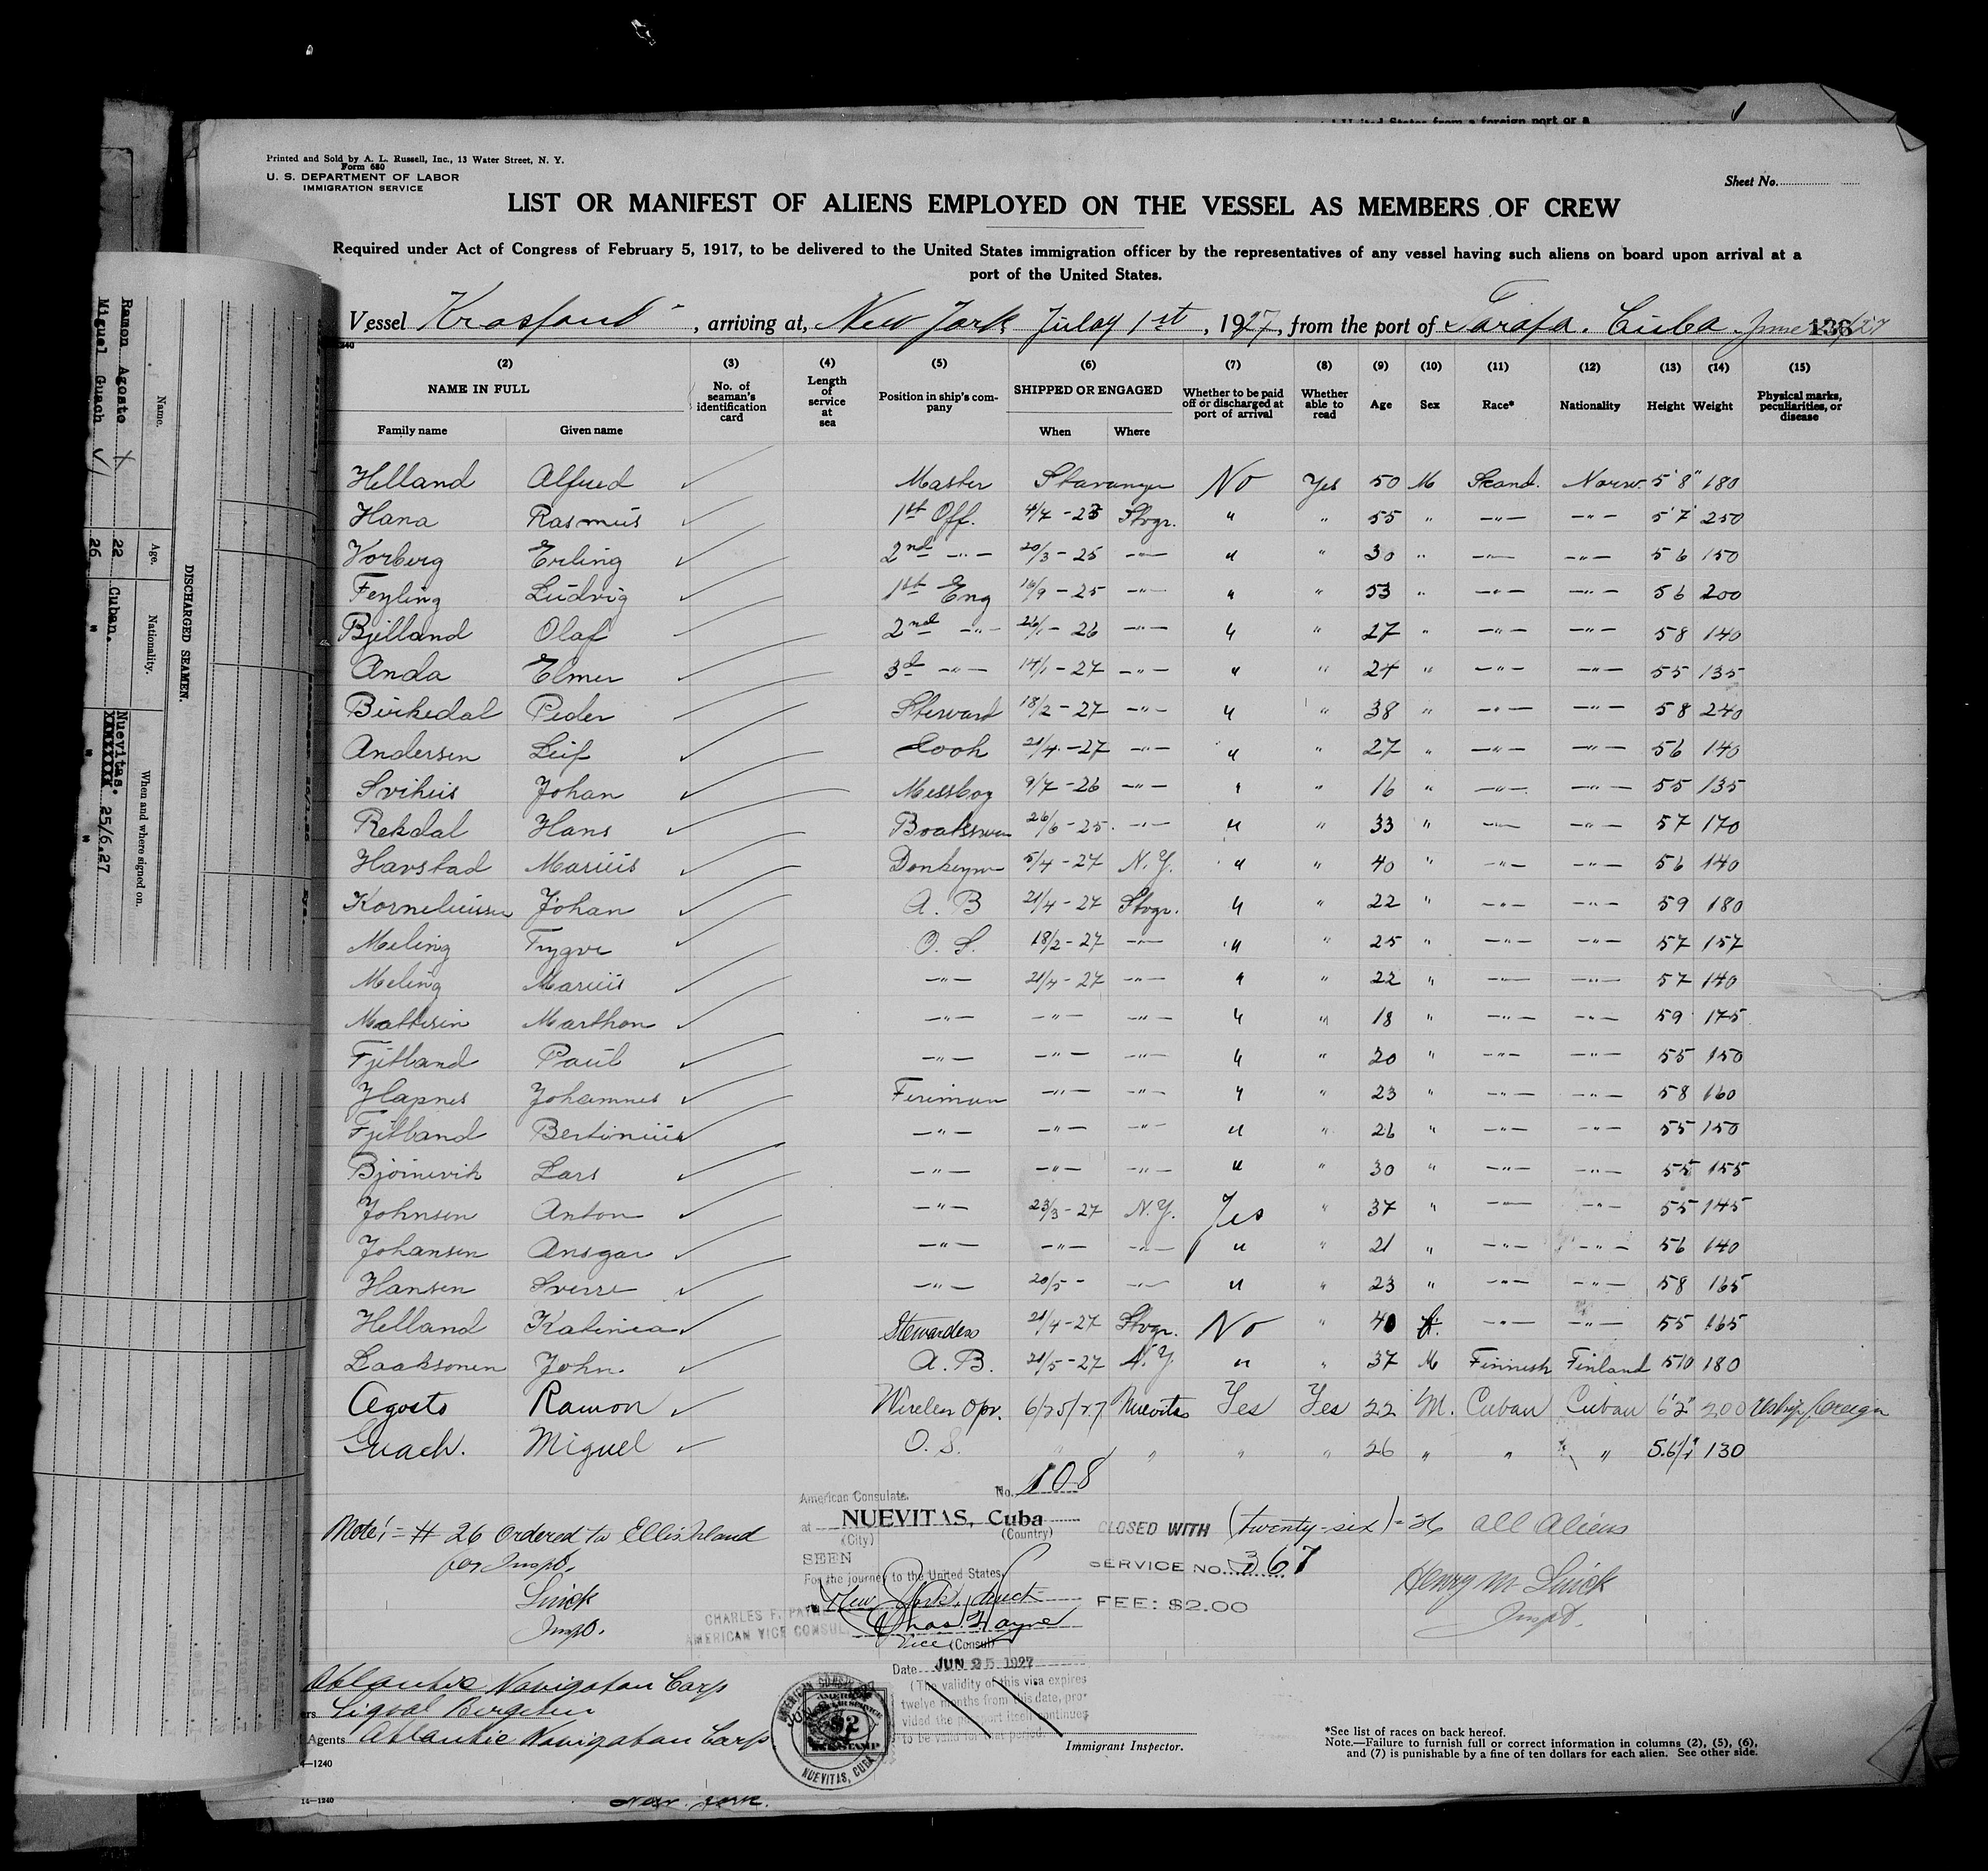 Printed and Sold by A. L. Russell, Inc., 13 Water Street, N. Y.
Form 680
U. S. DEPARTMENT OF LABOR
IMMIGRATION SERVICE
Sheet No.
LIST OR MANIFEST OF ALIENS EMPLOYED ON THE VESSEL AS MEMBERS OF CREW
Required under Act of Congress of February 5, 1917, to be delivered to the United States immigration officer by the representatives of any vessel having such aliens on board upon arrival at a
port of the United States.
Vessel Krosfond, arriving at, New York July 1st, 1927, from the port of Tarafa. Cuba June
136
(2) (3) (4) (5) (6) (7) (8) (9) (10) (11) (12) (13) (14) (15)
NAME IN FULL
Family name Given name
No. of seaman's identification card
Length of service at sea
Position in ship's company
SHIPPED OR ENGAGED
When Where
Whether to be paid off or discharged at port of arrival
Whether able to read
Age Sex Race* Nationality Height Weight
Physical marks, peculiarities, or disease
Helland Alfred Master Stavanger No Yes 50 M Scand. Norw. 5'8" 180
Hana Rasmus 1st Off. Stvgr. " " 55 " -"- -"- 5'7" 250
Vorberg Erling 2nd -"- 20/3-25 -"- " " 30 " -"- -"- 5 6 150
Feyling Ludvig 1st Eng 16/9-25 -"- " " 53 " -"- -"- 5 6 200
Bjelland Olaf 2nd -"- 26/1-26 -"- " " 27 " -"- -"- 5 8 140
Anda Elmer 3d -"- 14/1-27 -"- " " 24 " -"- -"- 5 5 135
Birkedal Peder Steward 18/2-27 -"- " " 38 " -"- -"- 5 8 240
Andersen Leif Cook 21/4-27 -"- " " 27 " -"- -"- 5 6 140
Svihus Johan Messboy 9/7-26 -"- " " 16 " -"- -"- 5 5 135
Rekdal Hans Boatswn 26/6-25 -"- " " 33 " -"- -"- 5 7 170
Havstad Marius Donkeym 5/4-27 N.Y. " " 40 " -"- -"- 5 6 140
Korneliussen Johan A. B 21/4-27 Stvgr. " " 22 " -"- -"- 5 9 180
Meling Trygve O. S. 18/2-27 -"- " " 25 " -"- -"- 5 7 157
Meling Marius -"- 21/4-27 -"- " " 22 " -"- -"- 5 7 140
Mattesen Marthon -"- -"- -"- " " 18 " -"- -"- 5 9 175
Fjetland Paul -"- -"- -"- " " 20 " -"- -"- 5 5 150
Hapnes Johannes Fireman -"- -"- " " 23 " -"- -"- 5 8 160
Fjetland Bertinius -"- -"- -"- " " 26 " -"- -"- 5 5 150
Bjoinevik Lars -"- -"- -"- " " 30 " -"- -"- 5 5 155
Johnsen Anton -"- 23/3-27 N.Y. Yes " 37 " -"- -"- 5 5 145
Johansen Ansgar -"- -"- -"- " " 21 " -"- -"- 5 6 140
Hansen Sverre -"- 20/5- -"- " " 23 " -"- -"- 5 8 165
Helland Katinca Stewardess 21/4-27 Stvgr. No " 40 f. -"- -"- 5 5 165
Laaksonen John. A. B. 21/5-27 N.Y. " " 37 M Finnish Finland 5 10 180
Agosto Ramon Wireless Opr. 6/25/27 Nuevitas Yes Yes 22 M. Cuban Cuban 6'2" 200 Reship foreign
Guach. Miguel O. S. " " " " 26 " " " 5.6½" 130
Note:- # 26 Ordered to Ellis Island
for Inspt.
Luick
Insp.
American Consulate, No. 108
at NUEVITAS, Cuba
(City) (Country)
SEEN
For the journey to the United States,
New York, direct
CHARLES F. PAYNE
AMERICAN VICE CONSUL
Chas. F. Payne
Vice (Consul)
Date JUN 25 1927
(The validity of this visa expires
twelve months from this date, pro-
vided the passport itself continues
to be valid for that period.
CLOSED WITH (twenty-six) = 26 all Aliens
SERVICE NO. 367
FEE: $2.00
Henry M Luick
Inspt.
Atlantic Navigation Corp
Sigval Bergesen
Agents Atlantic Navigation Corp
Immigrant Inspector.
*See list of races on back hereof.
Note.—Failure to furnish full or correct information in columns (2), (5), (6),
and (7) is punishable by a fine of ten dollars for each alien. See other side.
14—1240
New York.
AMERICAN
$2
NUEVITAS, CUBA
DISCHARGED SEAMEN.
Name. Age. Nationality. When and where signed on.
Ramon Agosto 22 Cuban. Nuevitas. 25/6.27
Miguel Guach 26 " " "